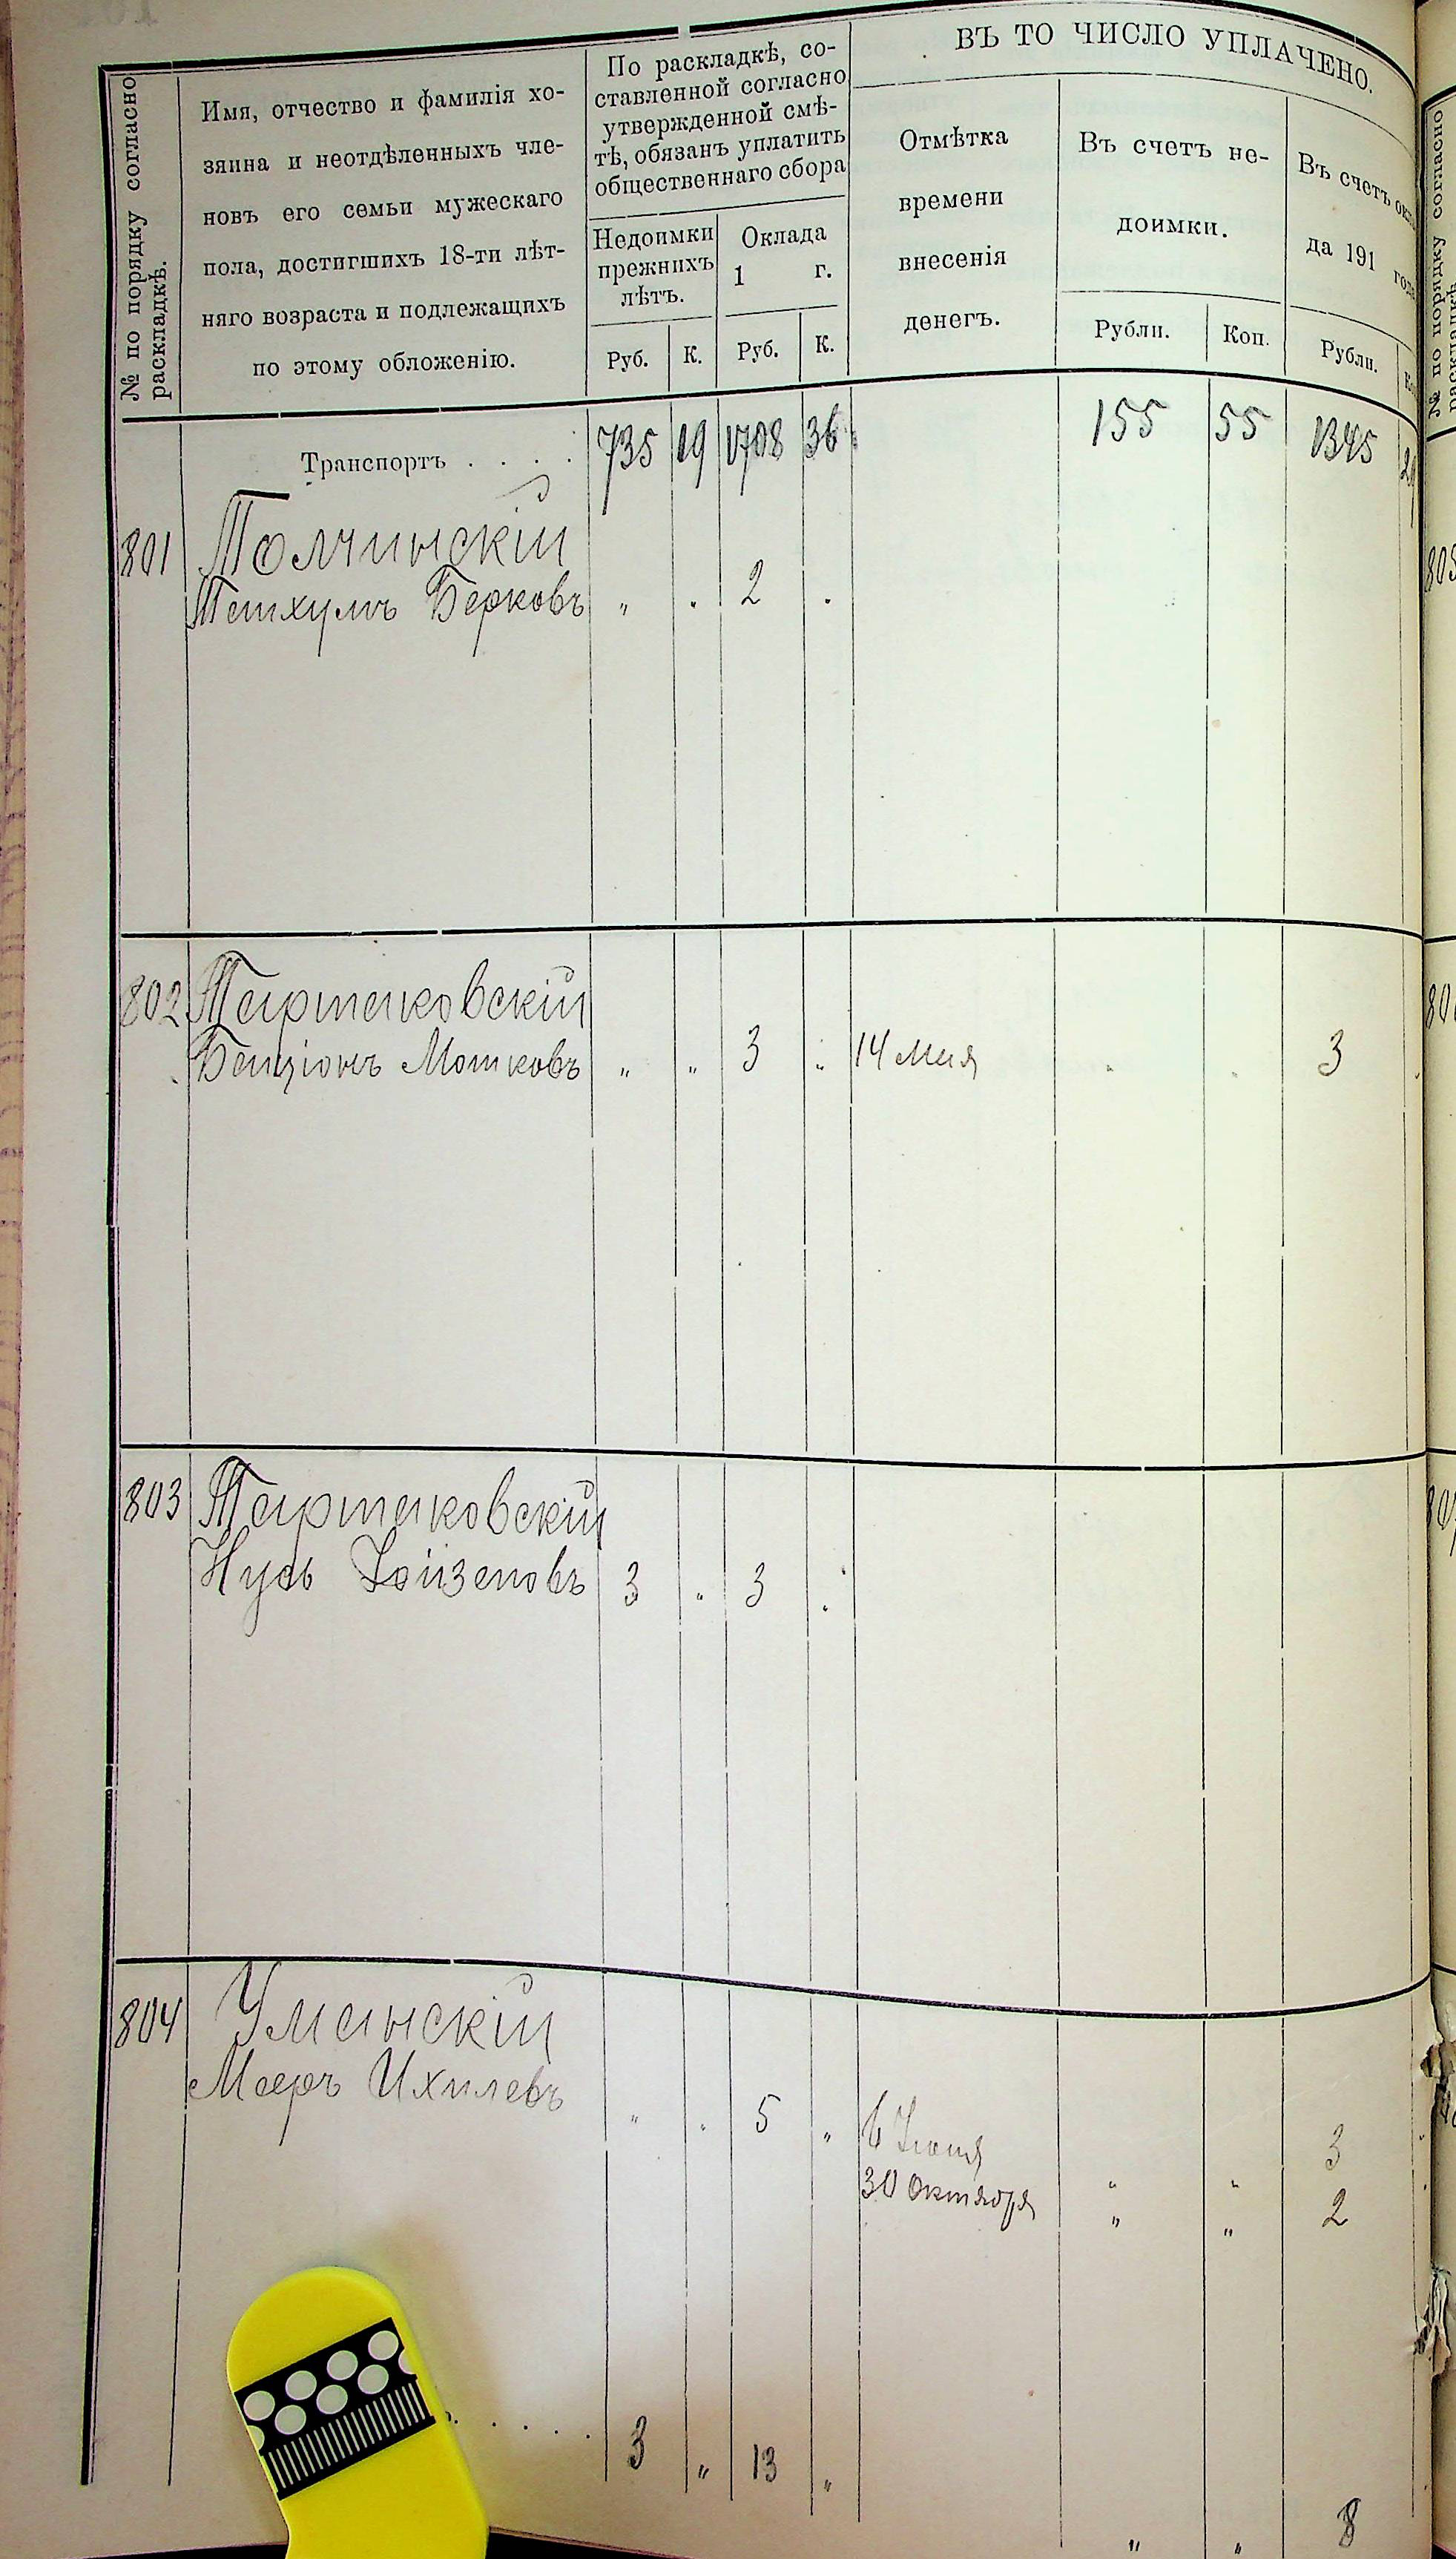 № по порядку согласно
раскладкѣ.
Имя, отчество и фамилія хо-
зяина и неотдѣленныхъ чле-
новъ его семьи мужескаго
пола, достигшихъ 18-ти лѣт-
няго возраста и подлежащихъ
по этому обложенію.
По раскладкѣ, со-
ставленной согласно
утвержденной смѣ-
тѣ, обязанъ уплатить
общественнаго сбора
Недоимки
прежнихъ
лѣтъ.
Оклада
1 г.
Руб. К. Руб. К.
ВЪ ТО ЧИСЛО УПЛАЧЕНО.
Отмѣтка
времени
внесенія
денегъ.
Въ счетъ не-
доимки.
Рубли. Коп.
Въ счетъ
да 191
Рубли.
Транспортъ . . . . 735 19 1708 36 155 55 1345
801 Толчинскій
Берковъ " . 2 .
802 Тартаковскій
Бенціонъ Мошковъ " " 3 . 14 Мая 3
803 Тартаковскій
Нусь 3 . 3 .
804 Уманскій
Мееръ Ихилевъ " . 5 "
3
30 Октября " " 2
3 " 13 "
" " 8